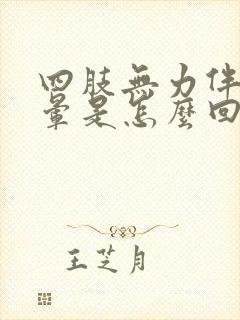 四肢無力伴
暈是怎麼回
王芝月